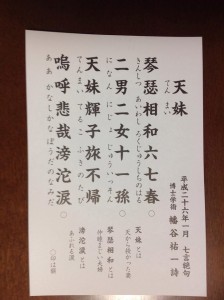 天妹
てんまい
平成二十六年一月 七言絶句
博士学術 幡谷祐一 詩
琴瑟相和六七春〇
きんしつ あいわしろくじゅうしちのはる
二男二女十一孫〇
になん にじょ じゅういっそん
天妹輝子旅不帰
てんまい てるこ ふきのたび
嗚呼悲哉滂沱涙〇
ああ かなしかなぼうだのなみだ
天妹とは
天から授かった妻
琴瑟相和とは
仲睦まじい夫婦
滂沱涙とは
あふれる涙
〇印は韻